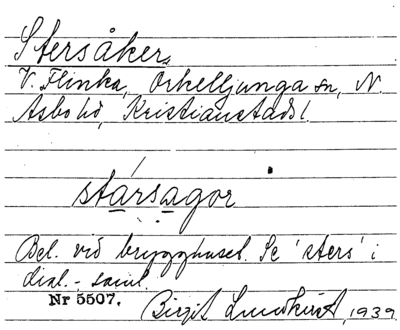 Stersåker.
V. Flinka, Örkelljunga sn, N.
Åsbo hd, Kristianstads l.
stársagor
Bel. vid brygghuset. Se 'sters' i
dial.-saml.
Nr 5507.
Birgit Lundkvist, 1939